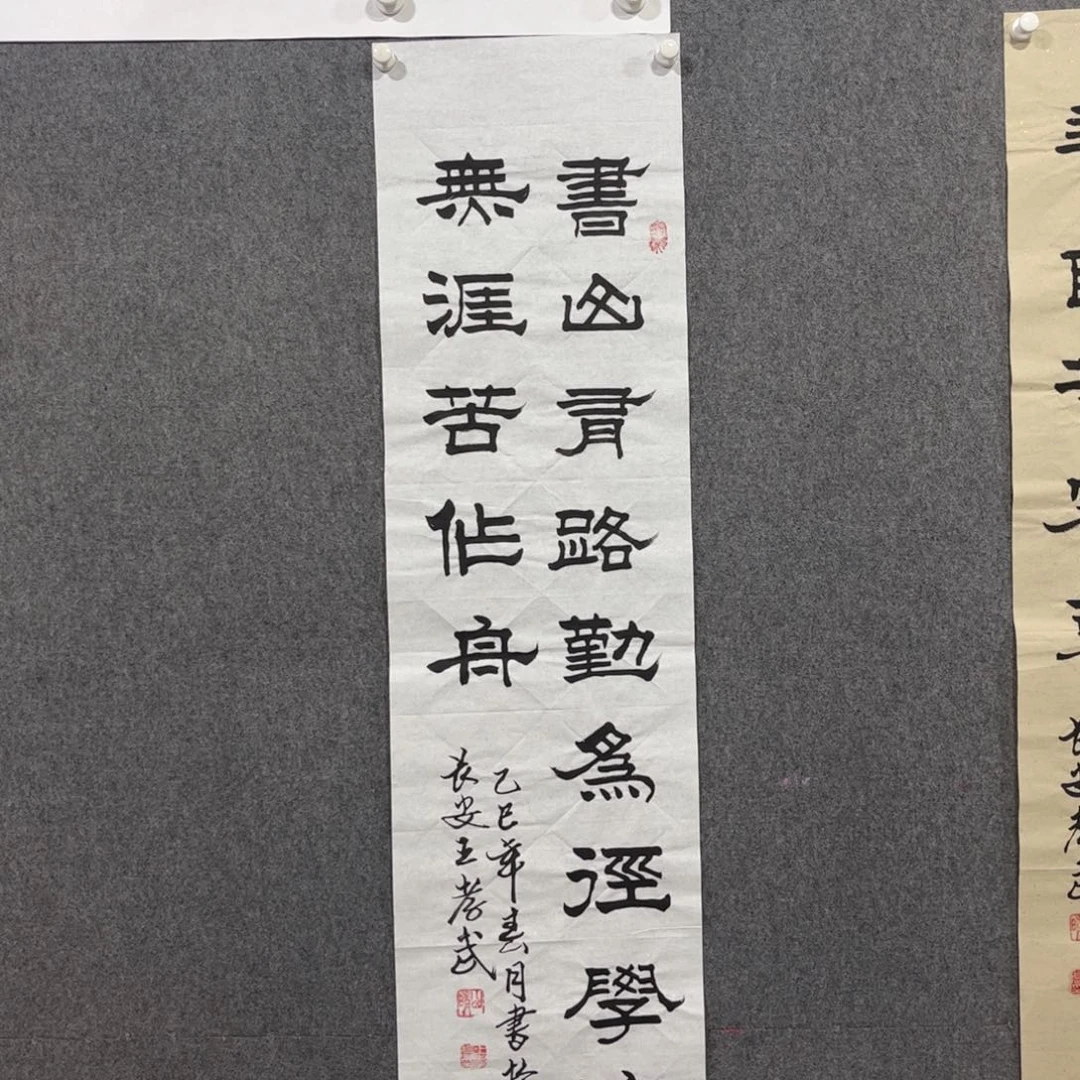 書山有路勤為徑學
無涯苦作舟
乙巳年春月書於
長安王孝武
長安孝武